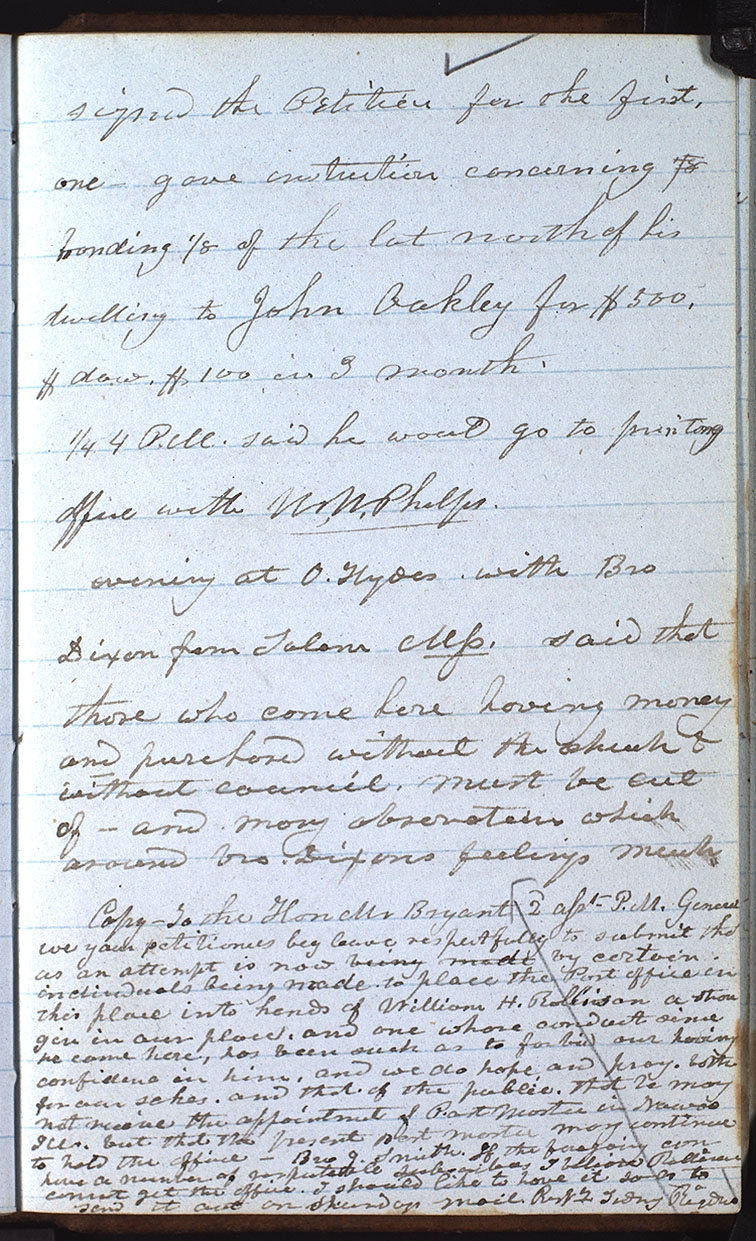 signed the Petition for the first,
one - gave instruction concerning
bonding 1/8 of the lot north of his
dwelling to John Oakley for $500.
$ dow. $100 in 3 month.
1/4 4 P.M. said he would go to printing
office with W. W. Phelps.
evening at O. Hydes. with Bro
Dixon from Salem Mss. said that
those who come here having money
and purchased without the church &
without council. must be cut
of - and many observatein which
aroused bro. Dixons feelings much
Copy - To the Hon Mr Bryant 2 asst P.M. General
we your petitioners beg leave respectfully to submit that
as an attempt is now being made by certain
individuals being made to place the Post office in
this place into hands of William H. Rollinson a stran
ger in our place. and one whose conduct since
he come here, has been such as to forbid our having
confidenc in him. and we do hope and pray. both
for our sakes. and that of the public. that he may
not receive the appointment of Post Master in Nauvoo
Ills. but that the present Post master may continue
to hold the office - Bro J. Smith. If the foregoing con
have a number of respectable subscribers I believe Rollinson
cannot get the office. I should like to have it so as to
send it out on Sundays mail. Sidny Rigdon